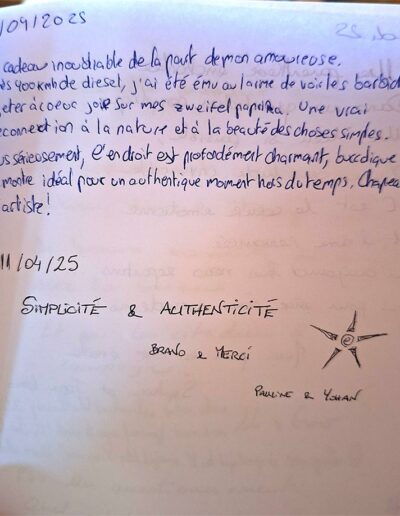 /09/2025
cadeau inoubliable de la part de mon amoureuse.
ès 900 kmh de diesel, j'ai été ému au larme de voir les barbid
eter à coeur joie sur mes zweifel paprika. Une vrai
connection à la nature et à la beauté des choses simples.
us sérieusement, l'endroit est profondément charmant, bucolique
montre idéal pour un authentique moment hors du temps. Chapeau
artiste!
11/04/25
SIMPLICITÉ & AUTHENTICITÉ
BRAVO & MERCI
PAULINE & YOHAN